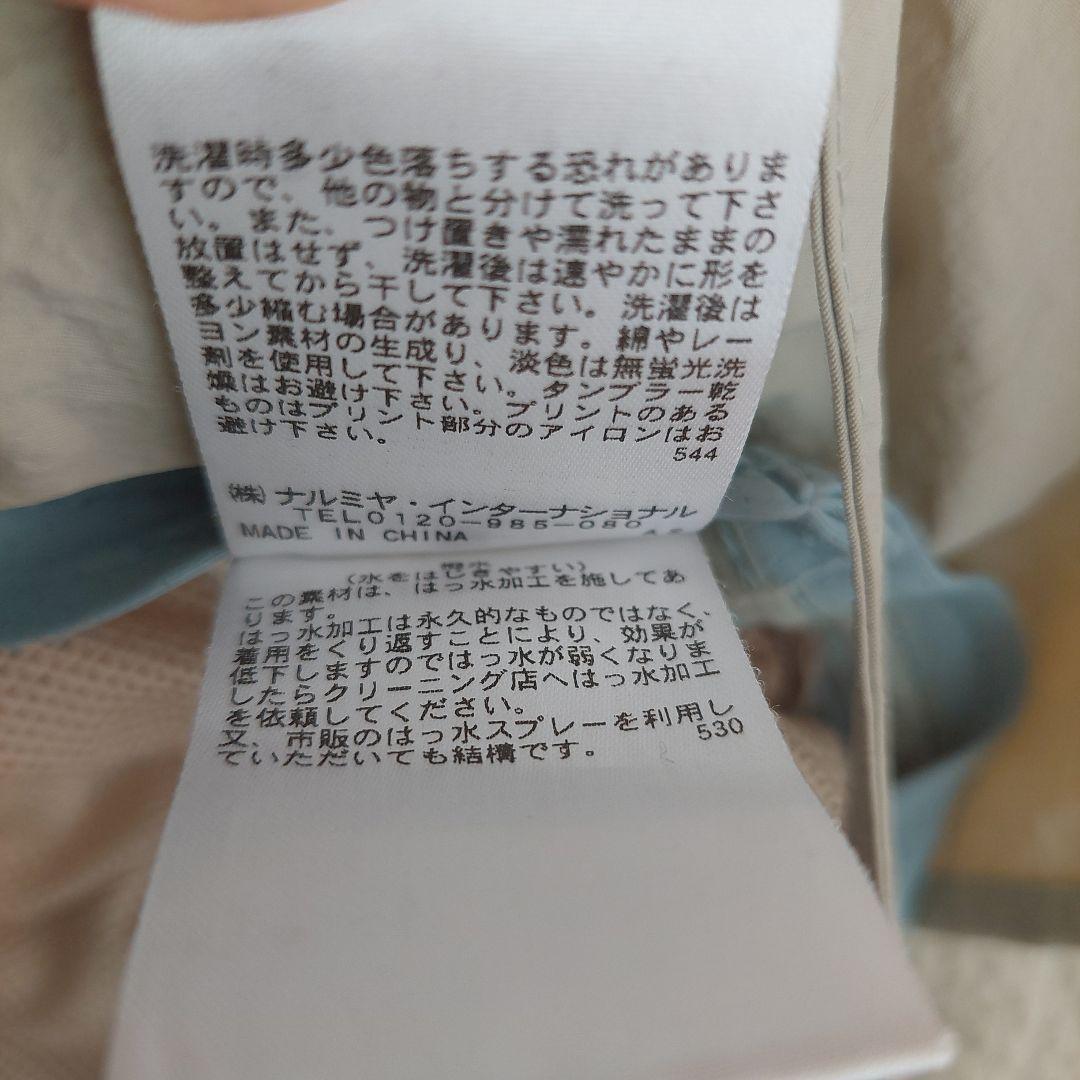 洗濯時多少色落ちする恐れがありま
すので、他の物と分けて洗って下さ
い。また、つけ置きや濡れたままの
放置はせず、洗濯後は速やかに形を
整えてから干して下さい。洗濯後は
多少縮む場合があります。綿やレー
ヨン素材の生成り、淡色は無蛍光洗
剤を使用して下さい。タンブラー乾
燥はお避け下さい。プリントのある
ものはプリント部分のアイロンはお
避け下さい。
544
㈱ナルミヤ・インターナショナル
TEL0120-985-080
MADE IN CHINA
(水をはじきやすい)
この素材は、はっ水加工を施してあ
ります。
はっ水加工は永久的なものではなく、
着用をくり返すことにより、効果が
低下しますのではっ水が弱くなりま
したらクリーニング店へはっ水加工
を依頼してください。
又、市販のはっ水スプレーを利用し
ていただいても結構です。
530